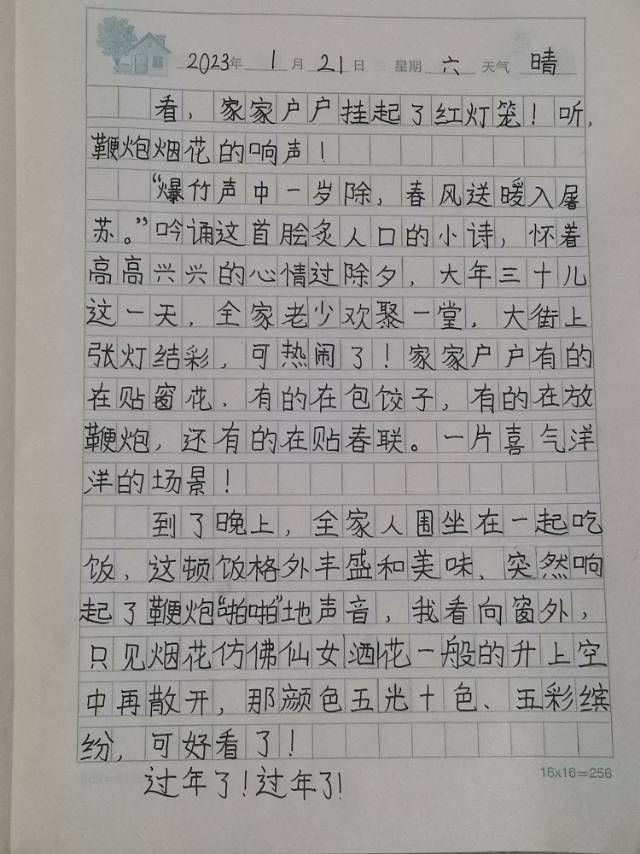 2023年1月21日 星期六 天气 晴
看，家家户户挂起了红灯笼！听，
鞭炮烟花的响声！
“爆竹声中一岁除，春风送暖入屠
苏。”吟诵这首脍炙人口的小诗，怀着
高高兴兴的心情过除夕，大年三十儿
这一天，全家老少欢聚一堂，大街上
张灯结彩，可热闹了！家家户户有的
在贴窗花．有的在包饺子，有的在放
鞭炮，还有的在贴春联。一片喜气洋
洋的场景！
到了晚上，全家人围坐在一起吃
饭，这顿饭格外丰盛和美味、突然响
起了鞭炮“啪啪”地声音，我看向窗外，
只见烟花仿佛仙女洒花一般的升上空
中再散开，那颜色五光十色、五彩缤
纷，可好看了！
过年了！过年了！
16x16=256